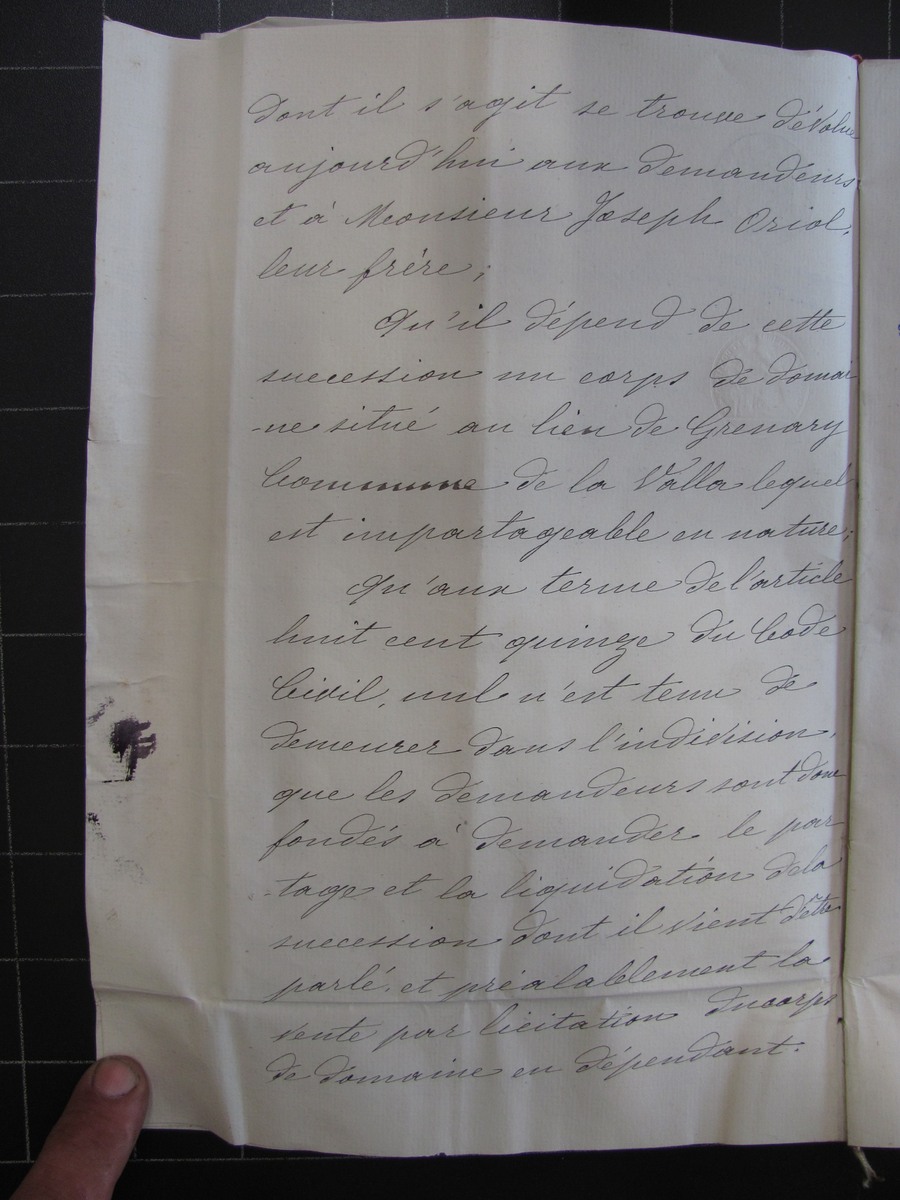 dont il s'agit se trouve dévolue
aujourd'hui aux demandeurs
et à Monsieur Joseph Oriol,
leur frère;
Qu'il dépend de cette
succession un corps de domai
-ne situé au lieu de Grenary
Commune de la Valla lequel
est impartageable en nature;
Qu'aux terme de l'article
huit cent quinze du Code
Civil, nul n'est tenu de
demeurer dans l'indivision,
que les demandeurs sont donc
fondés à demander le par
-tage et la liquidation de la
succession dont il vient d'être
parlé, et préalablement la
vente par licitation du corps
de domaine en dépendant.